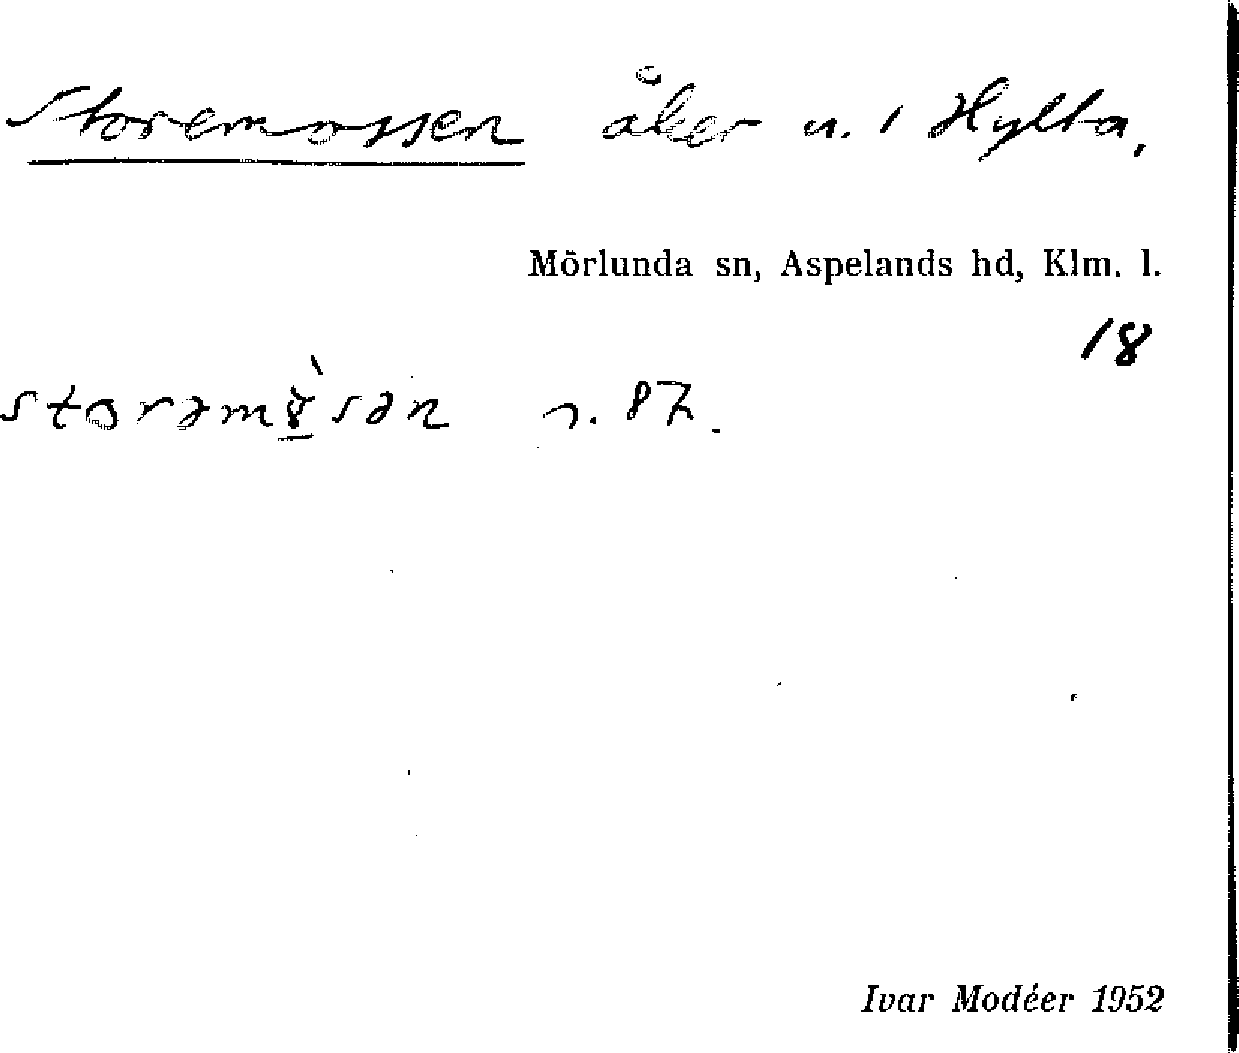 Storemossen åker u. 1 Hylta.
Mörlunda sn, Aspelands hd, Klm. l.
18
n. 87.
Ivar Modéer 1952